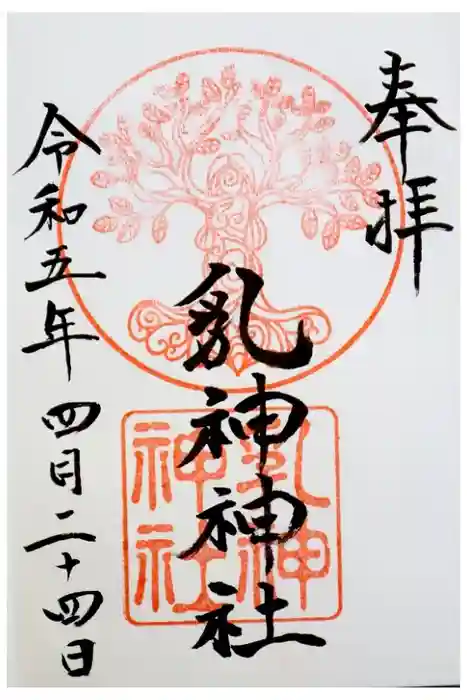 奉拝
乳神神社
乳神
神社
令和五年四月二十四日